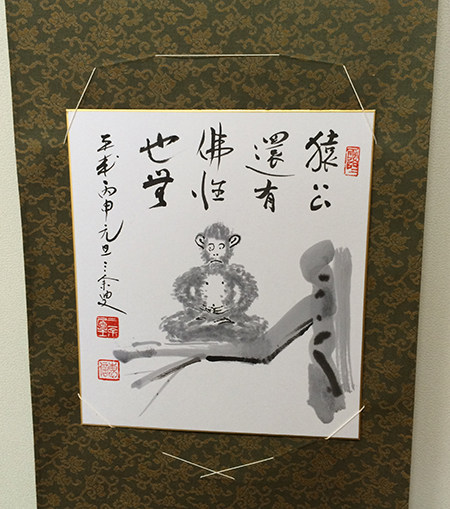 猿公
還有
佛性
也無
平成丙申元旦